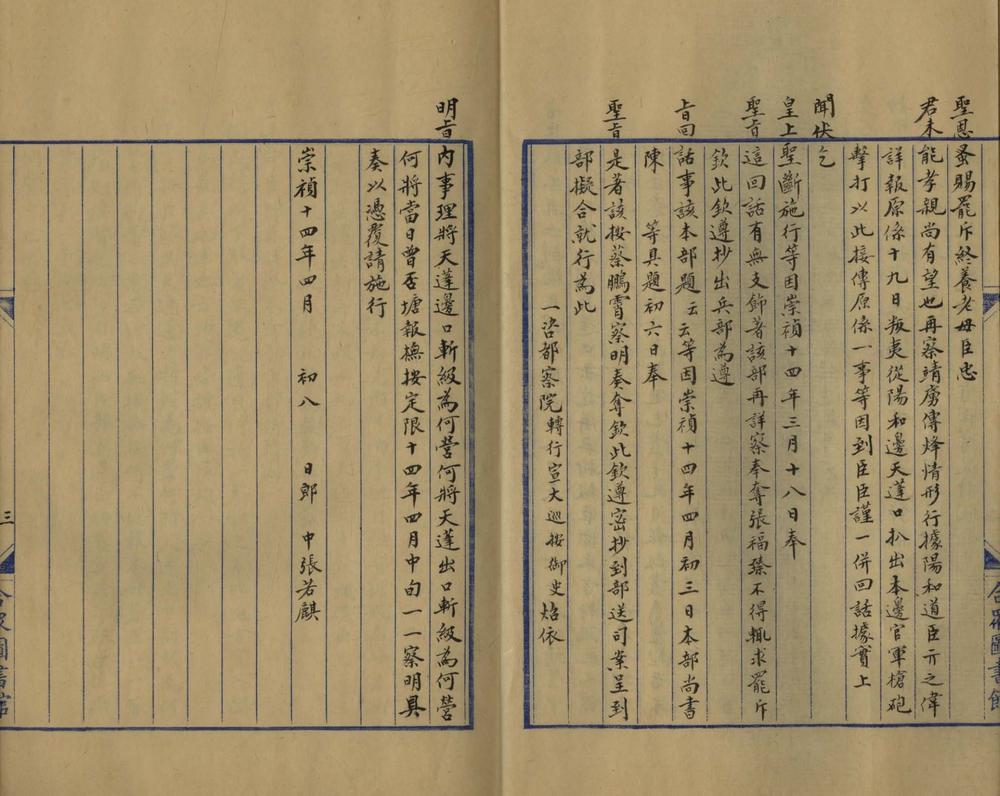 聖恩蚤賜罷斥終養老母臣忠
君未能孝親尚有望也再察靖虜傳烽情形行據陽和道臣亓之偉
詳報原係十九日叛夷從陽和邊天蓬口扒出本邊官軍槍砲
擊打以此接傳原係一事等因到臣臣謹一併回話據實上
聞伏乞
皇上聖斷施行等因崇禎十四年三月十八日奉
聖旨這回話有無支飾著該部再詳察奉奪張福臻不得輒求罷斥
欽此欽遵抄出兵部為遵
旨回話事該本部題云云等因崇禎十四年四月初三日本部尚書
陳 等具題初六日奉
聖旨是著該按蔡鵬霄察明奏奪欽此欽遵密抄到部送司案呈到
部擬合就行為此
一咨都察院轉行宣大巡按御史炤依
明旨內事理將天蓬邊口斬級為何營何將天蓬出口斬級為何營
何將當日曾否塘報撫按定限十四年四月中旬一一察明具
奏以憑覆請施行
崇禎十四年四月 初八 日郎 中張若麒
三
合眾圖書館
合眾圖書館